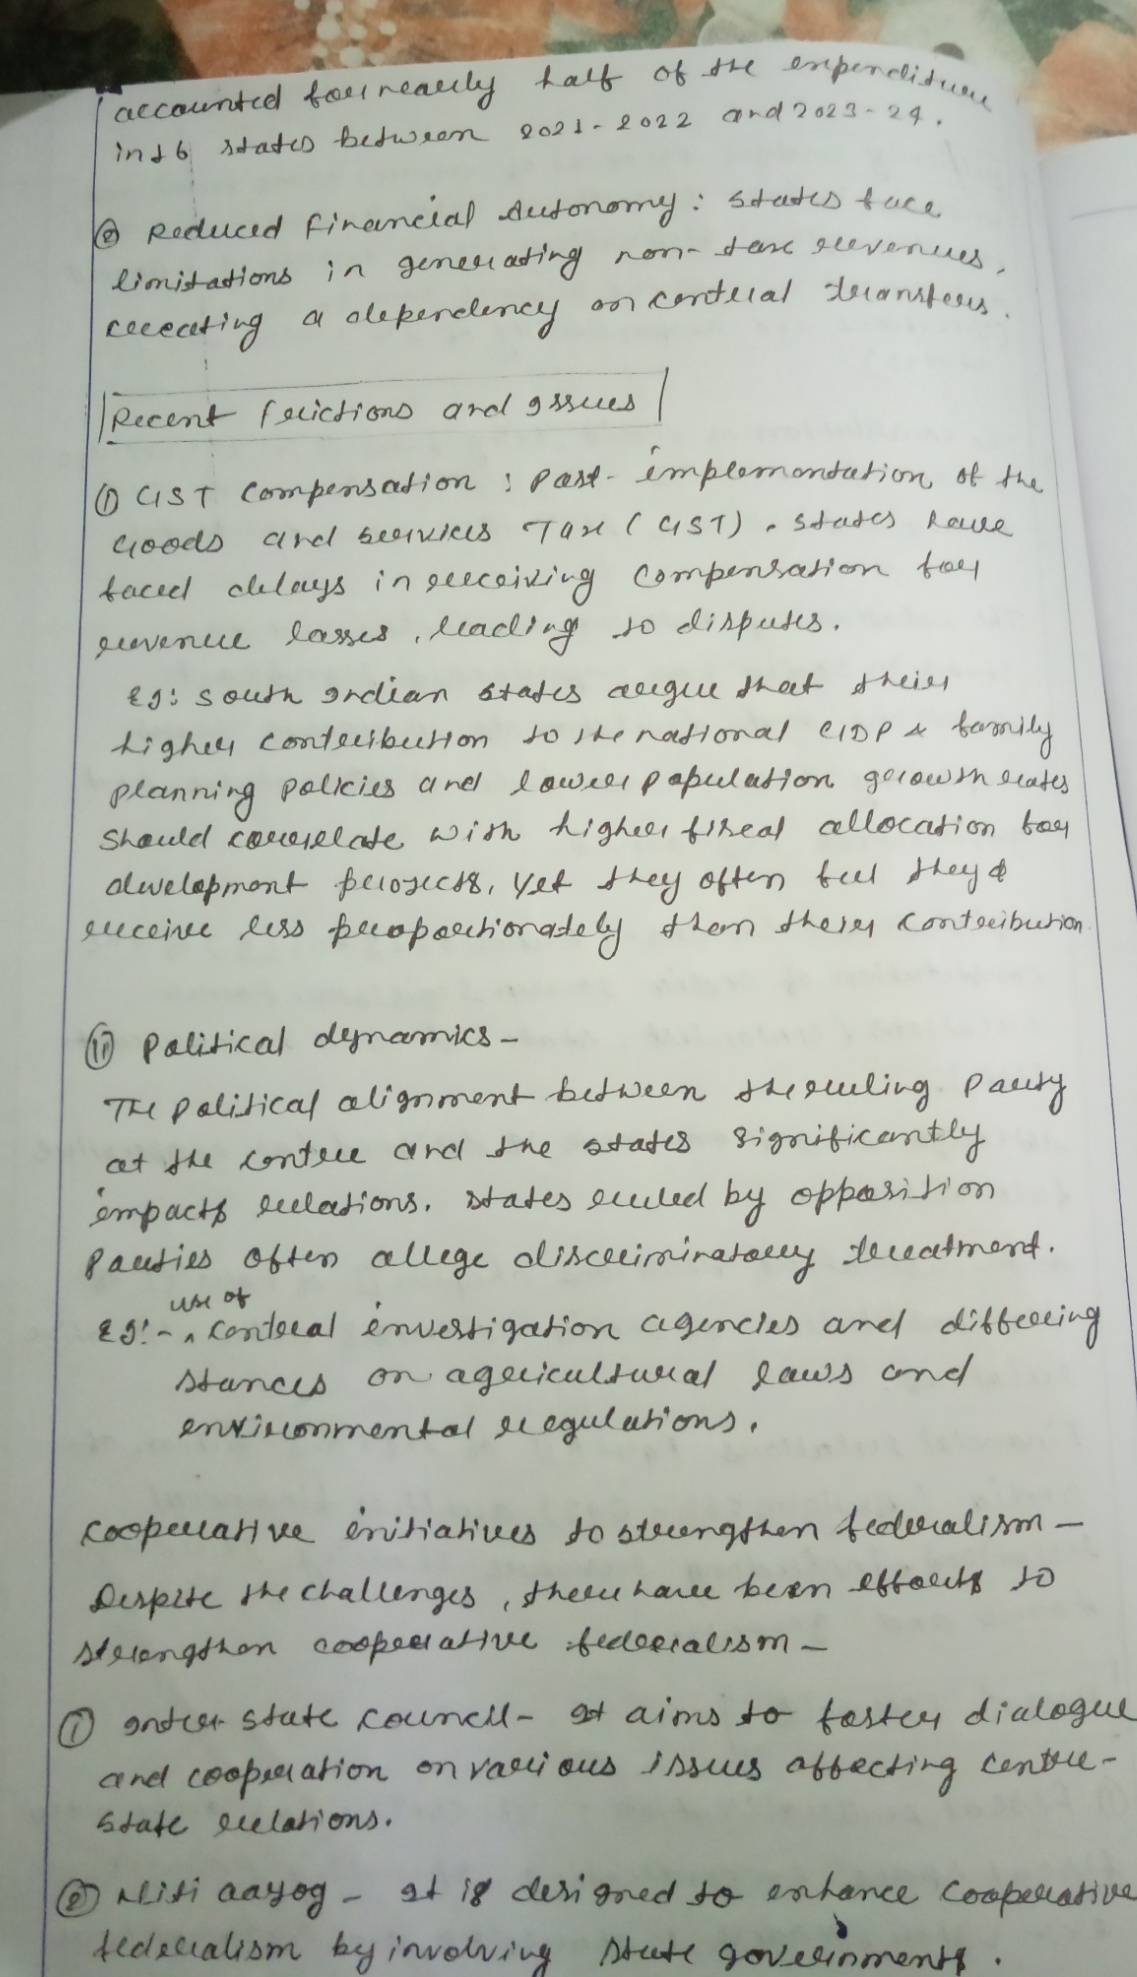 accounted for nearly half of the expenditure
in 16 states between 2021-2022 and 2023-24.
② Reduced Financial Autonomy: States face
limitations in generating non-tax revenues,
creating a dependency on central transfers.
Recent frictions and issues
① GST Compensation : Post-implementation of the
Goods and Services Tax (GST). States have
faced delays in receiving compensation for
revenue losses, leading to disputes.
Eg: South Indian states argue that their
higher contribution to the national GDP & family
planning policies and lower population growth rates
should correlate with higher fiscal allocation for
development projects, yet they often feel they
receive less proportionately than their contribution
⑪ Political dynamics -
The political alignment between the ruling party
at the centre and the states significantly
impacts relations. States ruled by opposition
parties often allege discriminatory treatment.
use of
Eg:- ^ central investigation agencies and differing
stances on agricultural laws and
environmental regulations.
Cooperative initiatives to strengthen federalism -
Despite the challenges, there have been efforts to
strengthen cooperative federalism -
① Inter state council - It aims to foster dialogue
and cooperation on various issues affecting centre-
state relations.
② Niti aayog - It is designed to enhance cooperative
federalism by involving state governments.